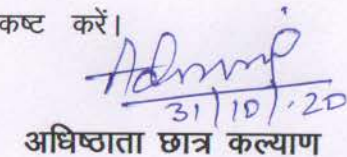 कष्ट करें।
31/10/.20
अधिष्ठाता छात्र कल्याण